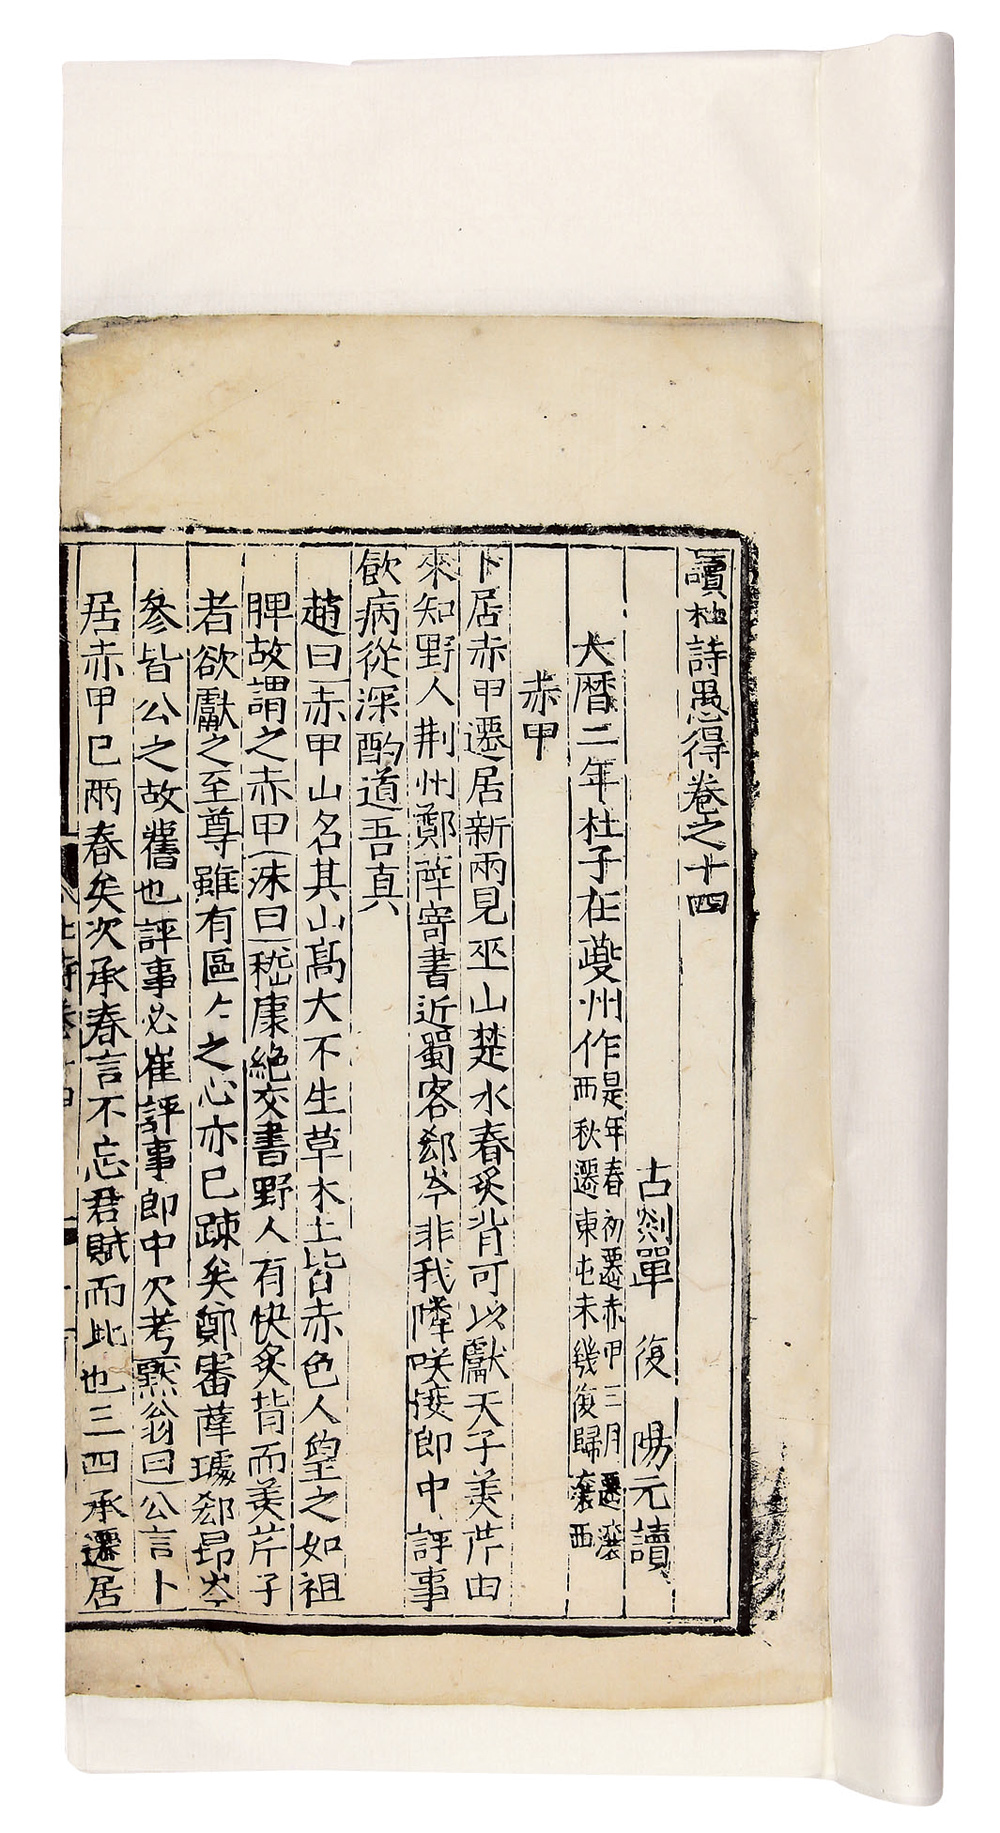 讀杜詩愚得卷之十四
古剡單　復　陽元讀
大曆二年杜子在夔州作是年春初遷赤甲三月遷瀼西秋遷東屯未幾復歸瀼西
赤甲
卜居赤甲遷居新兩見巫山楚水春炙背可以獻天子美芹由
來知野人荆州鄭薛寄書近蜀客郄岑非我隣咲接郎中評事
飲病從深酌道吾真
趙曰赤甲山名其山髙大不生草木土皆赤色人望之如袒
胛故謂之赤甲洙曰嵇康絶交書野人有快炙背而美芹子
者欲獻之至尊雖有區〻之心亦已踈矣鄭審薛璩郄昂岑
參皆公之故舊也評事必崔評事郎中欠考黙翁曰公言卜
居赤甲已兩春矣次承春言不忘君賦而比也三四承遷居